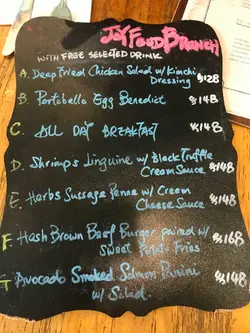 JOY FOOD BRUNCH
WITH FREE SELECTED DRINK
A. Deep Fried Chicken Salad w/ Kimchi
Dressing $128
B. Portobello Egg Benedict $148
C. ALL DAY BREAKFAST $148
D. Shrimps Linguine w/ Black Truffle
Cream Sauce $148
E. Herbs Sussage Penne w/ Cream
Cheese Sauce $148
F. Hash Brown Beef Burger paired w/
Sweet Potato Fries $168
G. Avocado Smoked Salmon Panini
w/ Salad. $148